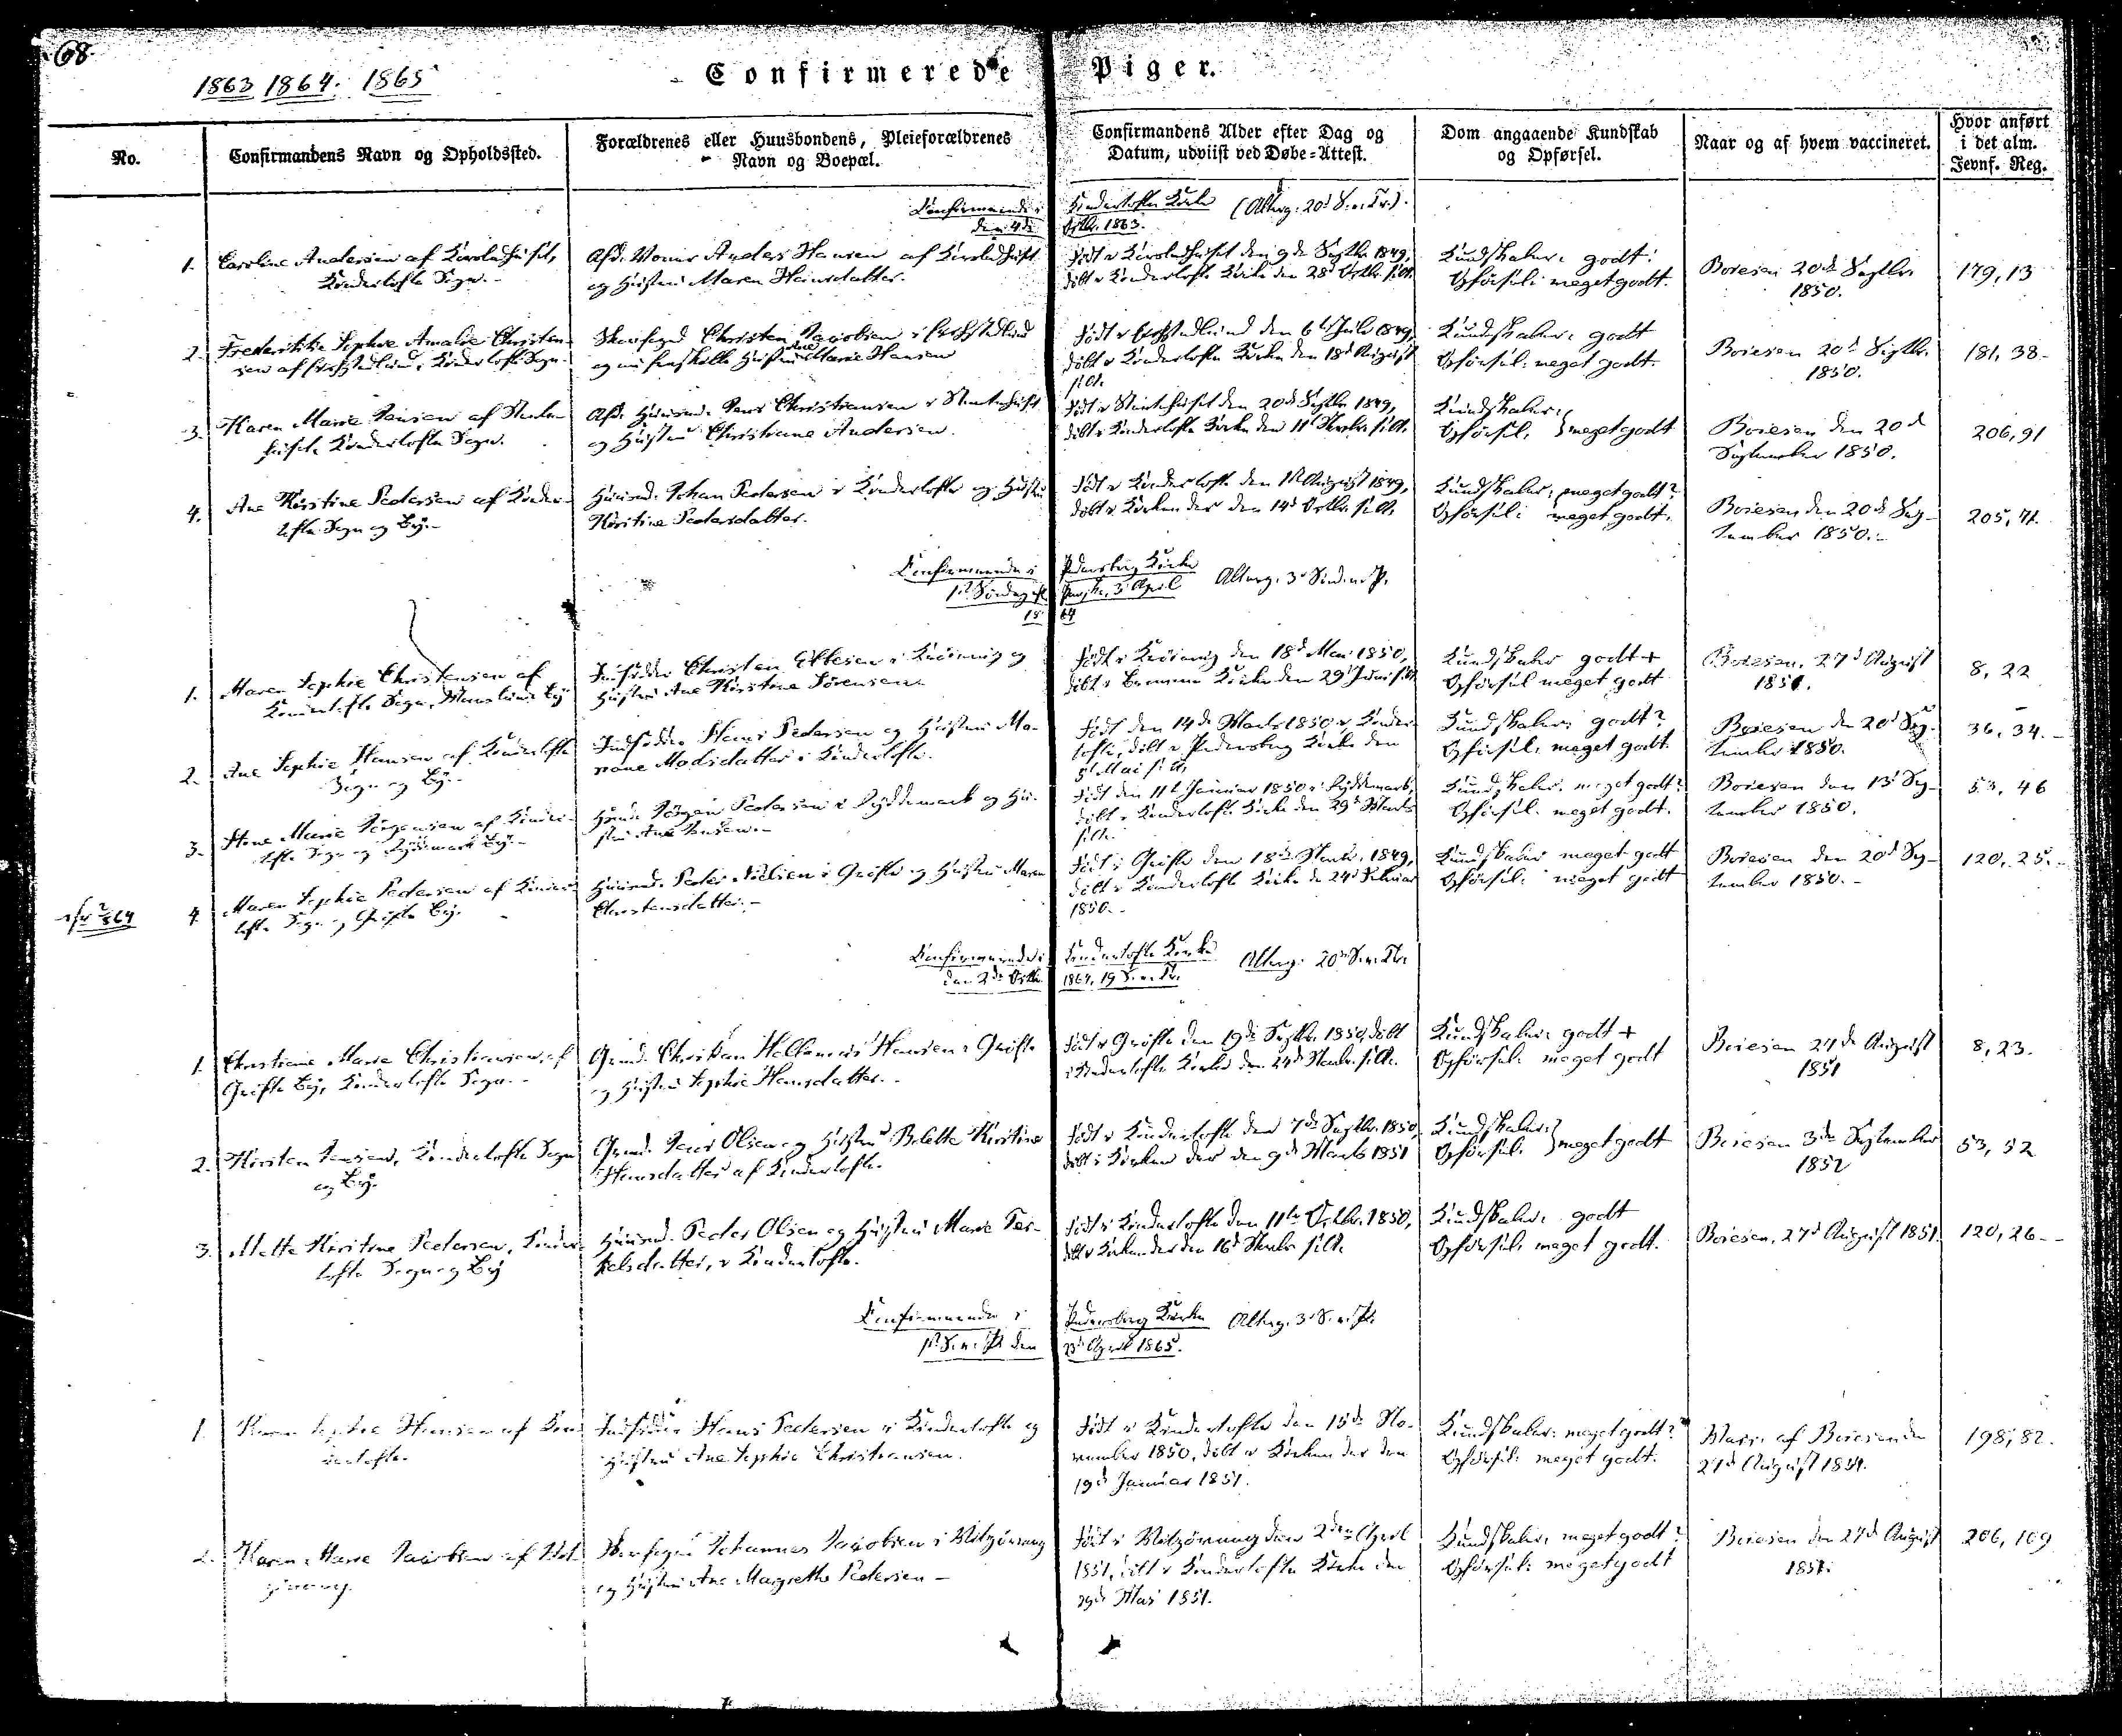 68
1863 1864. 1865
Confirmerede Piger.
No.
Confirmandens Navn og Opholdssted.
Forældrenes eller Huusbondens, Pleieforældrenes
Navn og Boepæl.
Confirmandens Alder efter Dag og
Datum, udviist ved Døbe-Attest.
Dom angaaende Kundskab
og Opførsel.
Naar og af hvem vaccineret.
Hvor anført
i det alm.
Jevnf. Reg.
Kindertofte Kirke (Alterg. 20d S. e. Tr.).
den 4de Octbr. 1863.
1. Caroline Andersen af
Kindertofte Sogn.
Afd. Anders Hansen af
og Hustru Maren Hansdatter.
Født i den 9de Septbr. 1849,
døbt i Kindertofte Kirke den 28d Octbr. s. A.
Kundskaber: godt:
Opførsel: meget godt.
Boiesen 20de Septbr.
1850.
179, 13
2. Frederikke Sophie Amalie Christen-
sen af Kindertofte Sogn
Skovfoged Christen Jacobsen i
og Hustru Marie Hansen
Født i den 6te Juli 1849,
døbt i Kindertofte Kirke den 18d August
s. A.
Kundskaber: godt
Opførsel: meget godt.
Boiesen 20d Septbr.
1850.
181, 38.
3. Karen Marie Jensen af
Kindertofte Sogn.
Afd. Huusmd. Jens Christiansen i
og Hustru Christiane Andersen.
Født i den 20d Septbr. 1849,
døbt i Kindertofte Kirke den 11t Novbr. s. A.
Kundskaber:
Opførsel: } meget godt
Boiesen den 20d
September 1850.
206, 91
4. Ane Kirstine Pedersen af Kinder-
tofte Sogn og By.
Huusmd. Johan Pedersen i Kindertofte og Hustru
Kirstine Pedersdatter.
Født i Kindertofte den 1st August 1849,
døbt i Kirken der den 14d Octbr. s. A.
Kundskaber: meget godt?
Opførsel: meget godt.
Boiesen den 20d Sep-
tember 1850.
205, 71.
Pedersborg Kirke
1st Søndag ef. Paaske, 3d April Alterg. 3d Sønd. e. P.
1864
1. Maren Sophie Christensen af
Kindertofte Sogn, By
Indsidder Christen i og
Hustru Ane Kirstine Sørensen.
Født i den 18d Mai 1850,
døbt i Kirke den 29d Juni s. A.
Kundskaber godt +
Opførsel meget godt
Boiesen, 27d August
1851.
8, 22
2. Ane Sophie Hansen af Kindertofte
Sogn og By.
Indsidder Hans Pedersen og Hustru Ma-
riane Madsdatter i Kindertofte.
Født den 14de Marts 1850 i Kinder-
tofte, døbt i Pedersborg Kirke den
Mai s. A.
Kundskaber: godt?
Opførsel: meget godt.
Boiesen den 20d Sep-
tember 1850.
36, 34.
3. Marie Jørgensen af Kinder-
tofte Sogn og By.
Huusmd. Jørgen Pedersen i og Hu-
stru Ane Jensen.
Født den 11te Januar 1850 i
døbt i Kindertofte Kirke den 29d Marts
s. A.
Kundskaber: meget godt?
Opførsel: meget godt.
Boiesen den 13d Sep-
tember 1850.
53, 46
4 Maren Sophie Pedersen af Kinder-
tofte Sogn og Grøfte By.
Huusmd. Peder Nielsen i Grøfte og Hustru Maren
Christensdatter.
Født i Grøfte den 18de Novbr. 1849,
døbt i Kindertofte Kirke den 24d Februar
1850.
Kundskaber meget godt
Opførsel: meget godt
Boiesen den 20d Sep-
tember 1850.
120, 25.
Kindertofte Kirke Alterg. 20d S. e. Tr.
den 2de Octbr. 1864, 19 S. e. Tr.
1. Christiane Marie Christiansen af
Grøfte By, Kindertofte Sogn.
Gmd. Christian Hansen i Grøfte
og Hustru Sophie Hansdatter.
Født i Grøfte den 19de Septbr. 1850, døbt
i Kindertofte Kirke den 24d Novbr. s. A.
Kundskaber: godt +
Opførsel: meget godt
Boiesen 27de August
1851
8, 23.
2. Kirsten Jensen, Kindertofte Sogn
og By.
Gmd. Jens Olsen og Hustru Bolette Kirstine
Hansdatter af Kindertofte.
Født i Kindertofte den 7de Septbr. 1850,
døbt i Kirken der den 9de Marts 1851
Kundskaber:
Opførsel: } meget godt
Boiesen 3die September
1852
53, 52
3. Mette Kirstine Pedersen, Kinder-
tofte Sogn og By
Huusmd. Peder Olsen og Hustru Marie Ter-
kelsdatter, i Kindertofte.
Født i Kindertofte den 11te Octbr. 1850,
døbt i Kirken der den 16d Novbr s. A.
Kundskaber: godt
Opførsel: meget godt.
Boiesen, 27d August 1851.
120, 26.
Pedersborg Kirke Alterg. 3d S. e. P.
1st S. e. P. den 23d April 1865.
1. Karen Sophie Hansen af Kin-
dertofte.
Indsidder Hans Pedersen i Kindertofte og
Hustru Ane Sophie Christiansen.
Født i Kindertofte den 15de No-
vember 1850, døbt i Kirken der den
19d Januar 1851.
Kundskaber: meget godt?
Opførsel: meget godt.
Vacc. af Boiesen den
27d August 1851.
198, 82.
2. Karen Marie Jacobsen af
Skovfoged Johannes Jacobsen i
og Hustru Ane Margrethe Pedersen
Født i den 2den April
1851, døbt i Kindertofte Kirke den
29d Mai 1851.
Kundskaber: meget godt?
Opførsel: meget godt
Boiesen den 27d August
1851.
206, 109